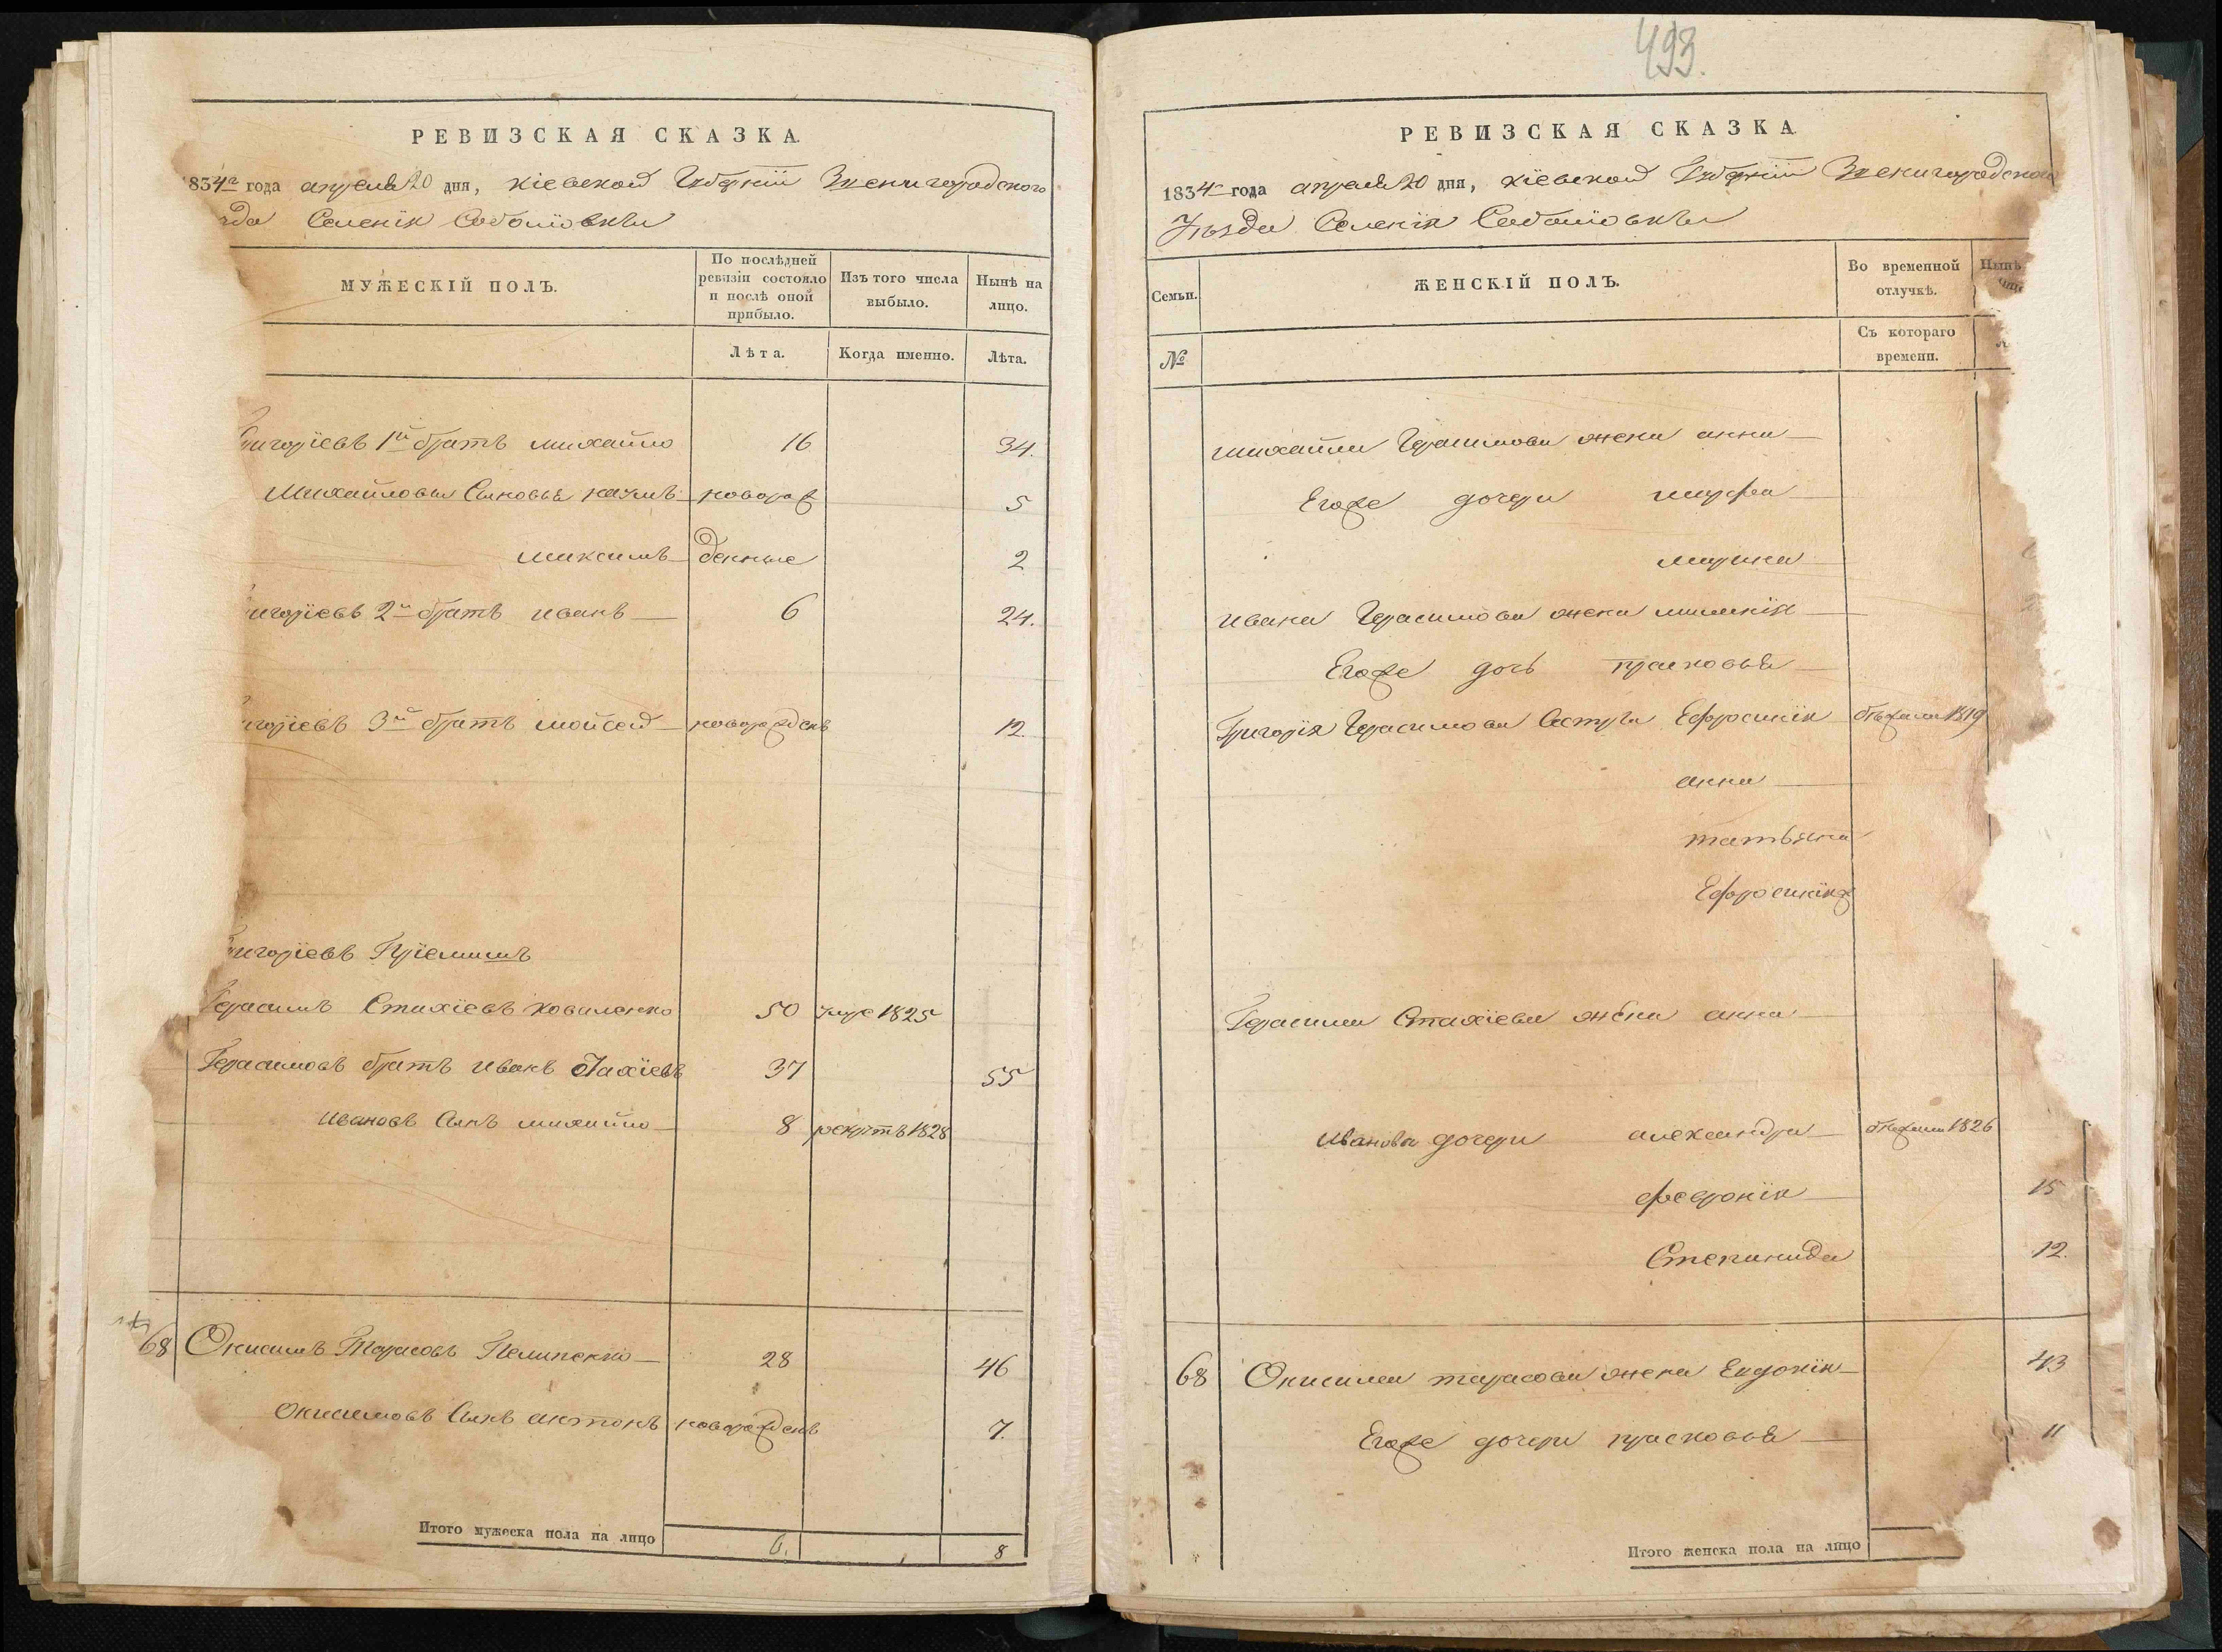 РЕВИЗСКАЯ СКАЗКА.
834го года апреля 20 дня, Кіевской Губерніи Звенигородского
зда Селенія Соболіовки
МУЖЕСКІЙ ПОЛЪ.
По послѣдней ревизіи состояло и послѣ оной прибыло.
Изъ того числа выбыло.
Нынѣ на лицо.
Лѣта.
Когда именно.
Лѣта.
ригоріевъ 1й братъ михайло 16 34.
Михайловы Сыновья наумъ новорож 5
максимъ денные 2
игоріевъ 2й братъ иванъ 6 24.
игоріевъ 3й братъ мойсей новорожденъ 12.
ригоріевъ Пріемышъ
Герасимъ Стахіевъ коваленко 50 умре 1825
Герасимовъ братъ иванъ Стахіевъ 37 55
ивановъ Сынъ михайло 8 рекрутъ 1828
68 Онисимъ Тарасовъ Пелипенко 28 46
онисимовъ Сынъ антонъ новорожденъ 7.
Итого мужеска пола на лицо 6. 8
493.
РЕВИЗСКАЯ СКАЗКА.
1834 года апреля 20 дня, кіевской Губерніи Звенигородского
Уѣзда Селенія Соболіовки
Семьи.
ЖЕНСКІЙ ПОЛЪ.
Во временной отлучкѣ.
Нынѣ
№
Съ котораго времени.
михайла Герасимова жена анна
Егоже дочери марфа
марина
ивана Герасимова жена маланія
Егоже дочь прасковья
Григорія Герасимова Сестры Ефросинія бѣжали 1819
анна
татьяна
Ефросиніяж
Герасима Стахіева жена анна
иванова дочери александра бѣжали 1826
февронія 15
Степанида 12.
68 Онисима тарасова жена Евдокія 43
Егоже дочери прасковья 11
Итого женска пола на лицо